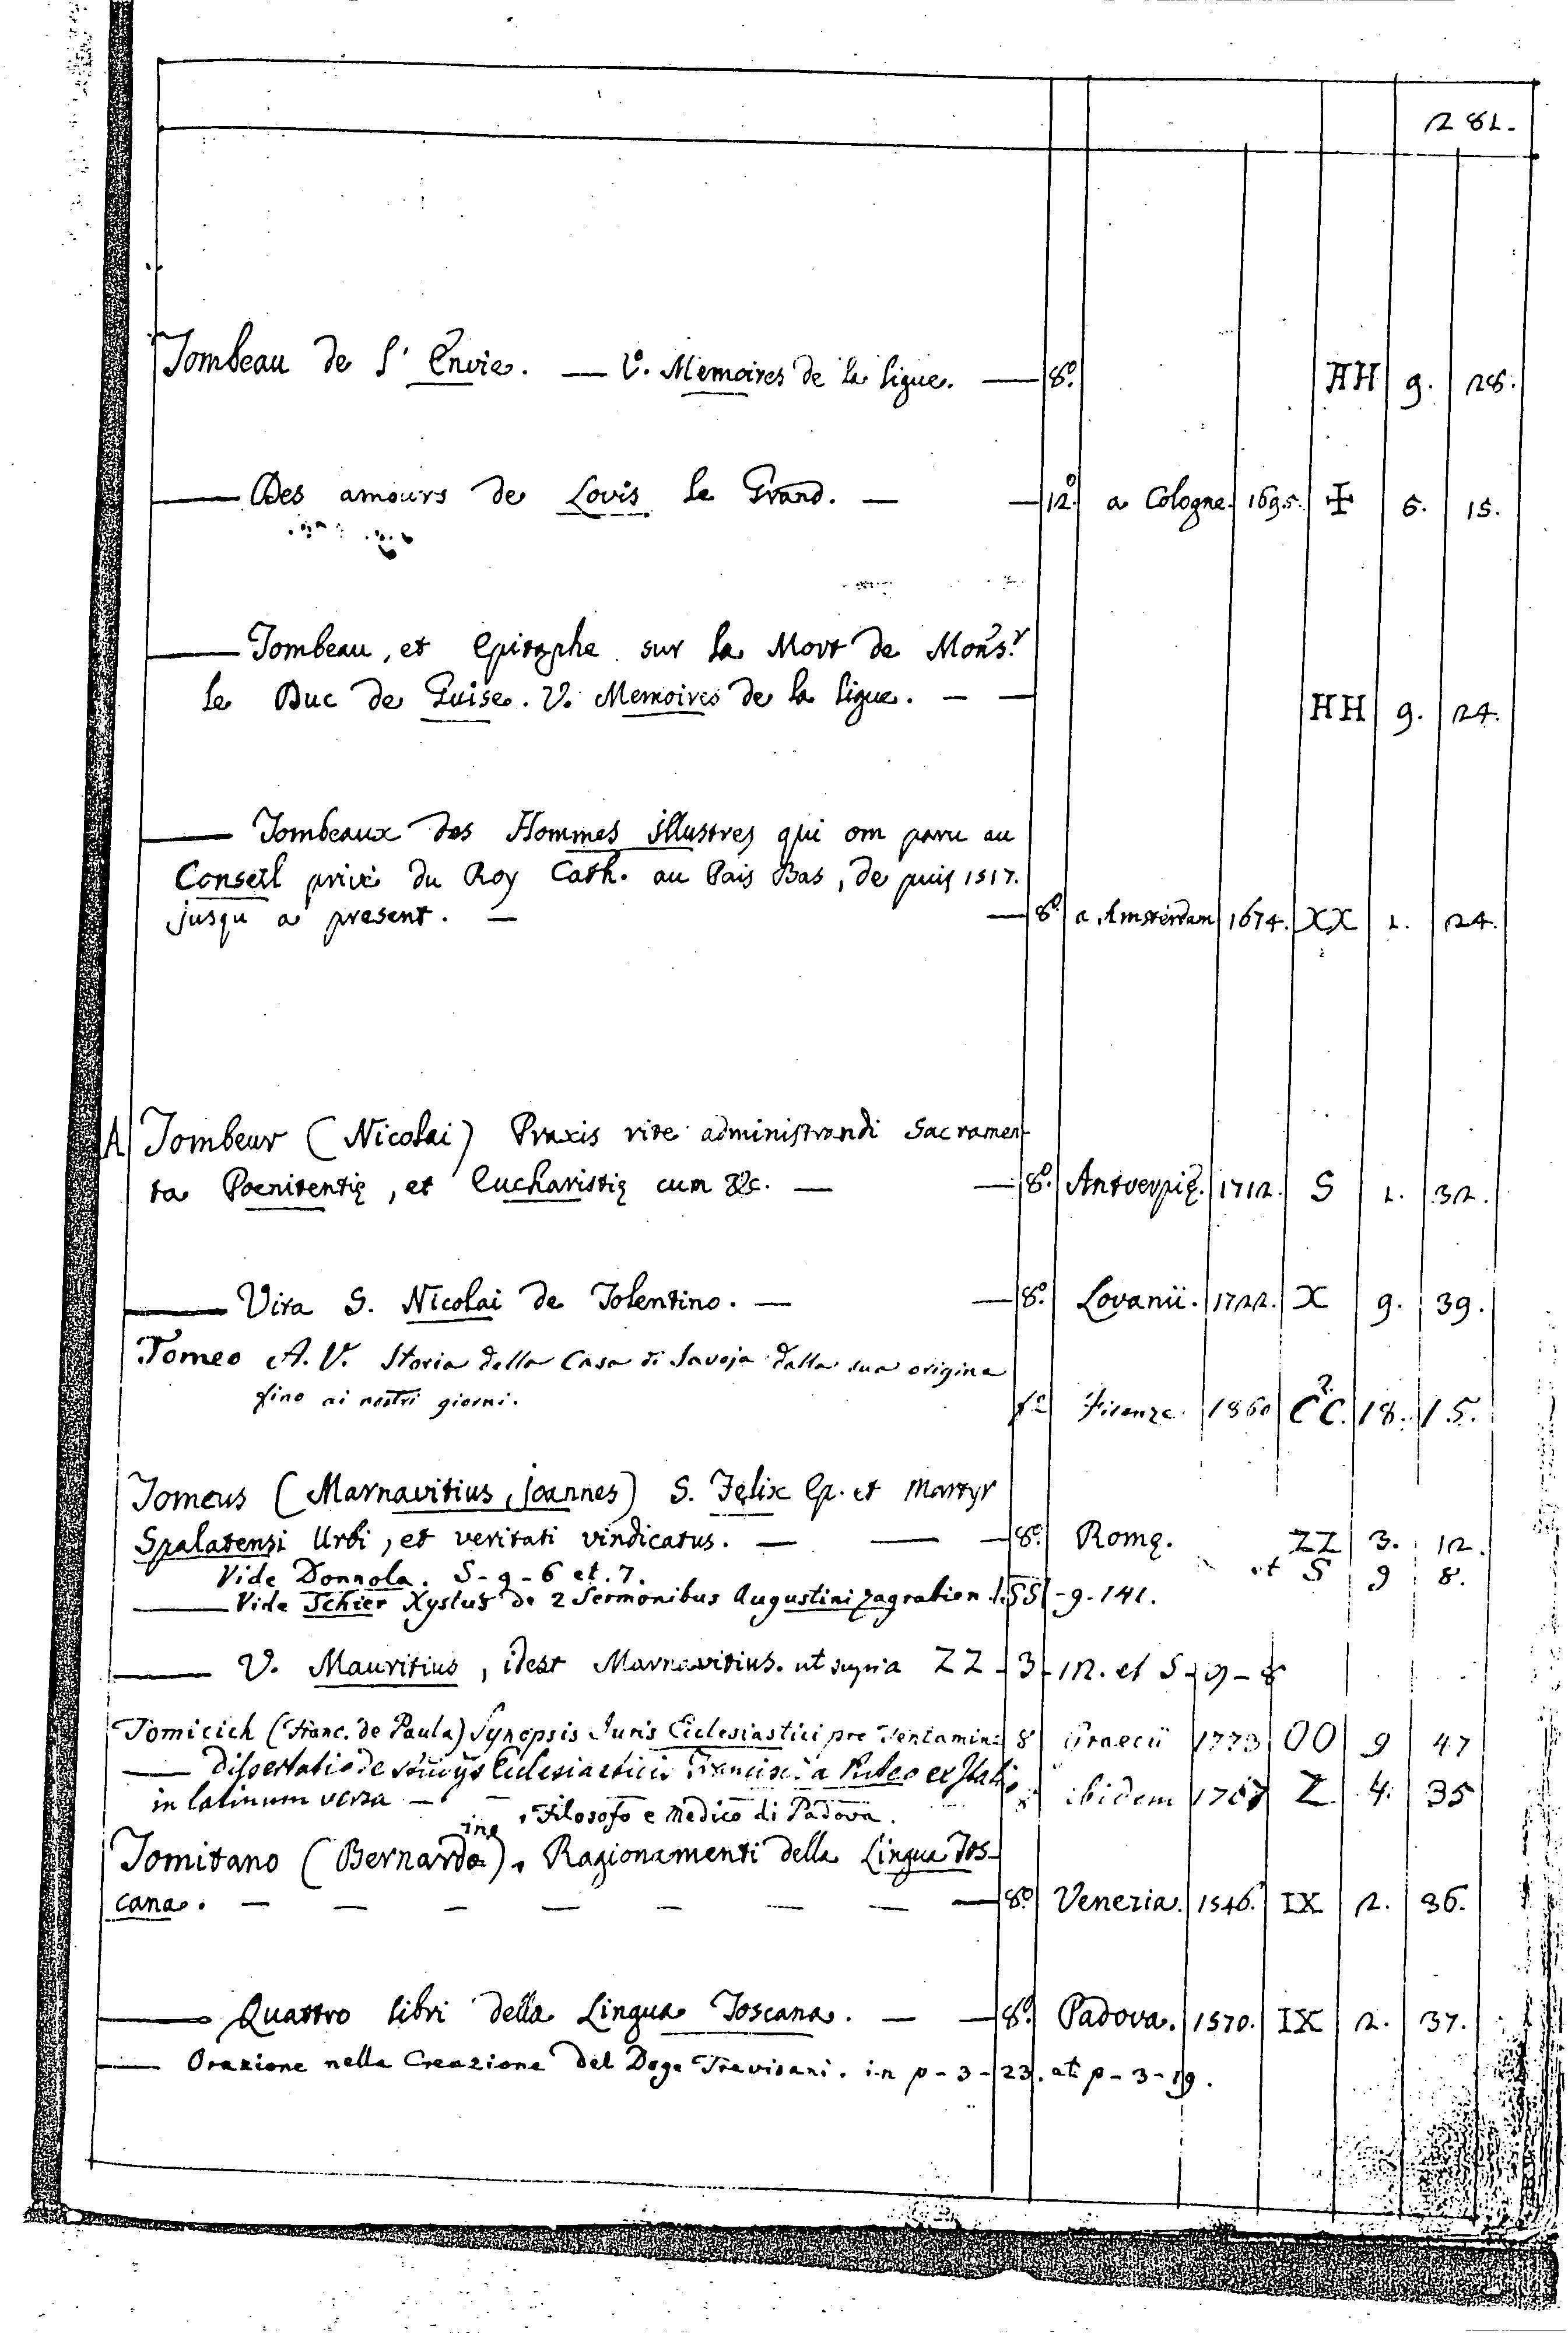 281.
Tombeau de l' Envie. — V. Memoires de la ligue. — 8º. HH 9. 28.
— Des amours de Lovis le Grand. — — 12º. a Cologne. 1695. ✠ 6. 15.
— Tombeau, et Epitaphe sur la Mort de Monsʳ.
le Duc de Guise. V. Memoires de la ligue. — — HH 9. 24.
— Tombeaux des Hommes illustres qui om paru au
Conseil privé du Roy Cath. au Pais Bas, de puis 1517.
jusqu a present. — — 8º a Amsterdam 1674. XX 1. 24.
A Tombeur (Nicolai) Praxis rite administrandi Sacramen-
ta Poenitentię, et Eucharistię cum &c. — — 8º. Antverpię. 1712. S 1. 32.
— Vita S. Nicolai de Tolentino. — — 8º. Lovanii. 1722. X 9. 39.
Tomeo A. V. Storia della Casa di Savoja dalla sua origine
fino ai nostri giorni. fº Firenze. 1860 CC. 18. 15.
Tomeus (Marnavitius, Joannes) S. Felix Ep. et Martyr
Spalatensi Urbi, et veritati vindicatus. — — — 8º. Romę. ZZ 3. 12.
Vide Donnola. S-9-6 et. 7. et S 9 8.
— Vide Tchier Xystus de 2 Sermonibus Augustini zagrabien. SS-9-141.
— V. Mauritius, idest Marnavitius. ut supra ZZ-3-12. et S-9-8
Tomicich (Franc. de Paula) Synopsis Juris Ecclesiastici pre Tentamine 8 Graecii 1773 OO 9 47
— Dissertatio de Ecclesiasticis Francisci a Puteo ex Italico
in latinum versa — — — — ibidem Z. 4. 35
ino, Filosofo e Medico di Padova.
Tomitano (Bernardo). Ragionamenti della Lingua Tos-
cana. — — — — — — — — 8º. Venezia. 1546. IX 2. 36.
— Quattro libri della Lingua Toscana. — — 8º. Padova. 1570. IX 2. 37.
— Orazione nella Creazione del Doge Trevisani. in p-3-23. et p-3-19.